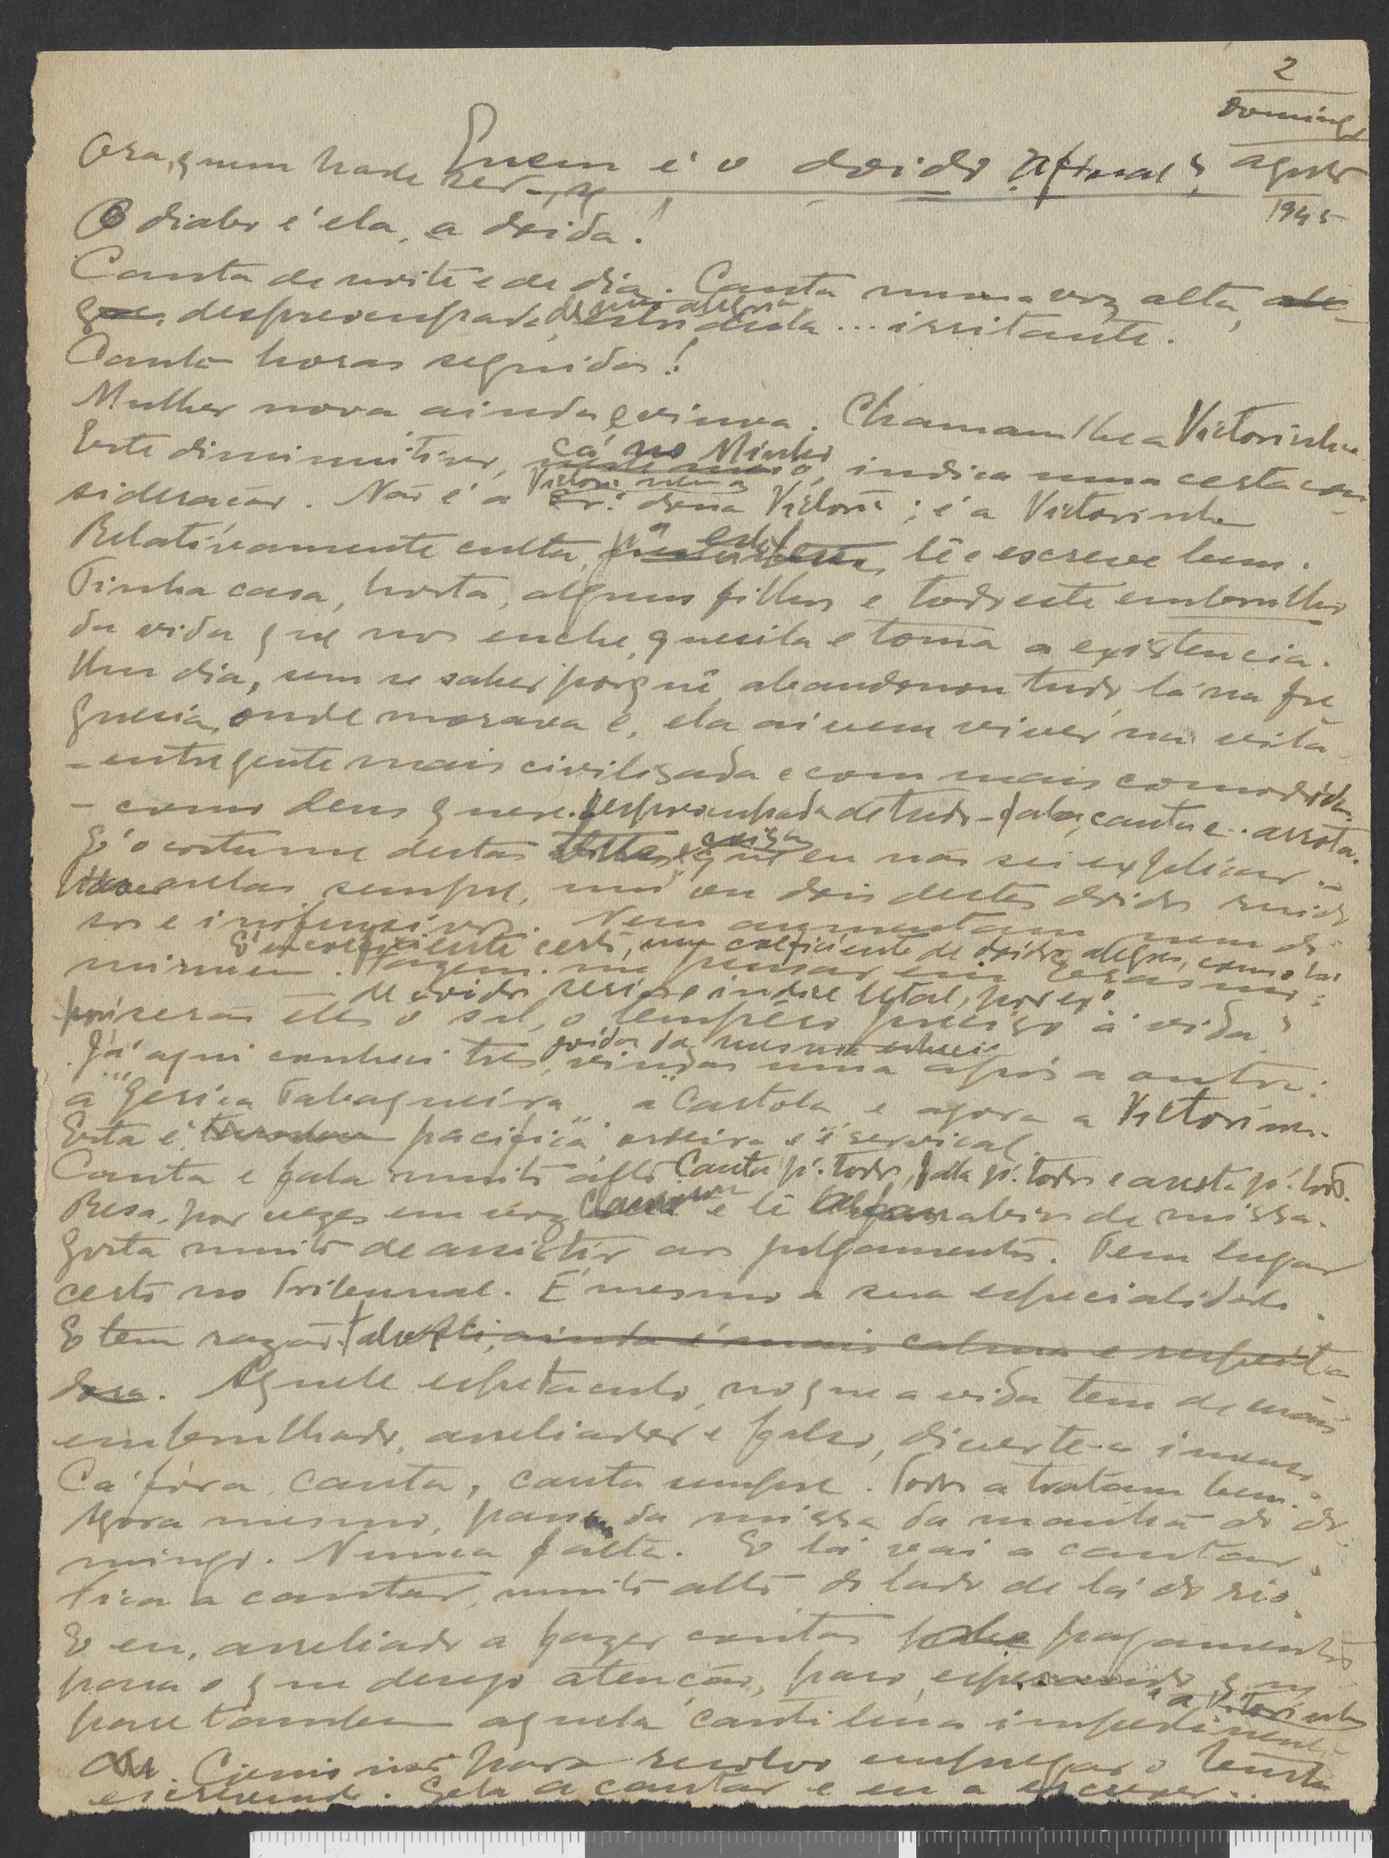 2
Domingo
Agosto
1945
Quem é o doido afinal?
Ora, quem hade ser
O diabo é ela, a doida!
Canta de noite e de dia. Canta numa voz alta, ale-
gre, despreocupada, duma alegria estridula... irritante.
Canta horas seguidas!
Mulher nova ainda e viuva. Chamam lhe a Victorinha
Este diminuitivo, cá no Minho, indica uma certa con-
sideração. Não é a Victorina, sr.ª dona Victoria; é a Victorinha
Relativamente culta, lê e escreve bem.
Tinha casa, horta, alguns filhos e todo este embrulho
da vida que nos enche, e toma a existencia.
Um dia, sem se saber porquê, abandonou tudo, lá na fre-
guesia, onde morava e, ela ai vem viver na vila
- entre gente mais civilisada e com mais comodidade
- como Deus quere. Despreocupada de tudo - fala, canta e.. arrota.
É o costume destas coisa que eu não sei explicar..
nelas sempre, um ou dois destes doidos ruido-
sos e inofensivos. Nem aumentam nem di-
minuem.
É coeficiente certo, um coeficiente de doidos alegres, como o
de doidos seria o indice letal, por ex.º
Fazem-me pensar em
serão eles o sal, o tempero preciso á vida?
Já aqui conheci três, doidas da mesma especie vindas uma após a outra:
a "Gesica Tabaqueira", a Cartola e agora a Victorina.
Esta é pacifica e é serviçal.
Canta e fala muito alto. Canta p.ª todos, fala p.ª todos e arrota p.ª todos.
Resa, por vezes em voz e lê livro de missa.
Gosta muito de assistir aos julgamentos. Tem lugar
certo no Tribunal. É mesmo a sua especialidade.
E tem razão. ainda é mais calma e respeita-
dora. Aquele espetaculo, no que a vida tem de mais
embrulhado, arreliador e falso, diverte-a imenso
Cá fóra, canta, canta sempre. Todos a tratam bem.
Agora mesmo, passou da missa da manhã do do-
mingo. Nunca falta. E lá vai a cantar.
Fica a cantar, muito alto do lado de lá do rio.
E eu, arreliado a fazer contas pagamentos
para o que desejo atenção, paro, esperando que
passe tambem aquela cantilena impertinente
a Vitorinha
Como não para resolvo empregar o tempo
escrevendo. Ela a cantar e eu a escrever..